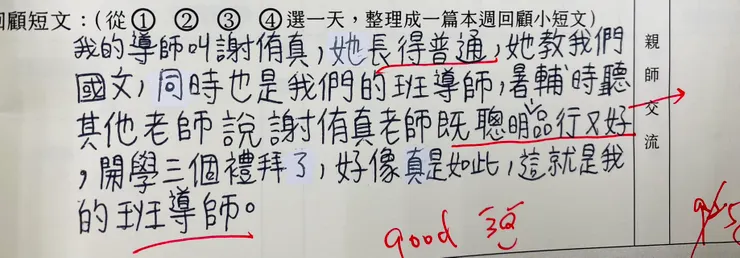 回顧短文：(從 ① ② ③ ④ 選一天，整理成一篇本週回顧小短文)
我的導師叫謝侑真，她長得普通，她教我們
國文，同時也是我們的班導師，暑輔時聽
其他老師說謝侑真老師既聰明品行又好
，開學三個禮拜了，好像真是如此，這就是我
的班導師。
親師交流
good